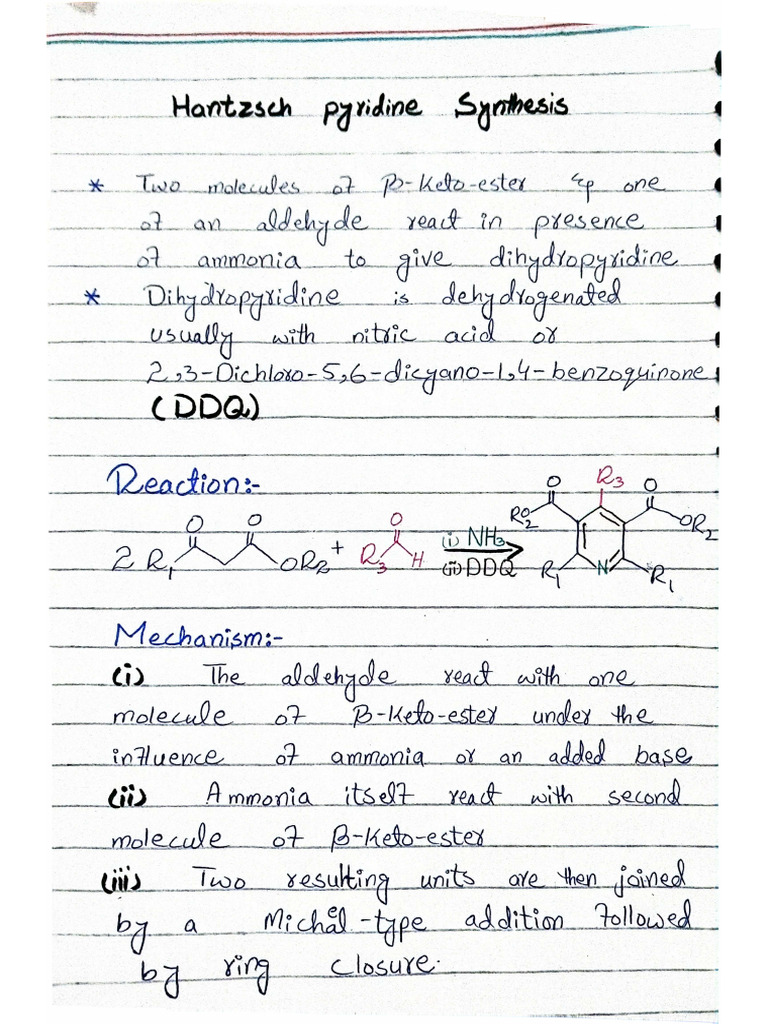 Hantzsch pyridine Synthesis
* Two molecules of β-keto-ester & one
of an aldehyde react in presence
of ammonia to give dihydropyridine
* Dihydropyridine is dehydrogenated
usually with nitric acid or
2,3-Dichloro-5,6-dicyano-1,4-benzoquinone
(DDQ)
Reaction:-
2 R1 O O OR2 + R3 O H (i) NH3 (ii) DDQ R2O O R3 O OR2 R1 N R1
Mechanism:-
(i) The aldehyde react with one
molecule of β-keto-ester under the
influence of ammonia or an added base
(ii) Ammonia itself react with second
molecule of β-keto-ester
(iii) Two resulting units are then joined
by a Michael-type addition followed
by ring closure.